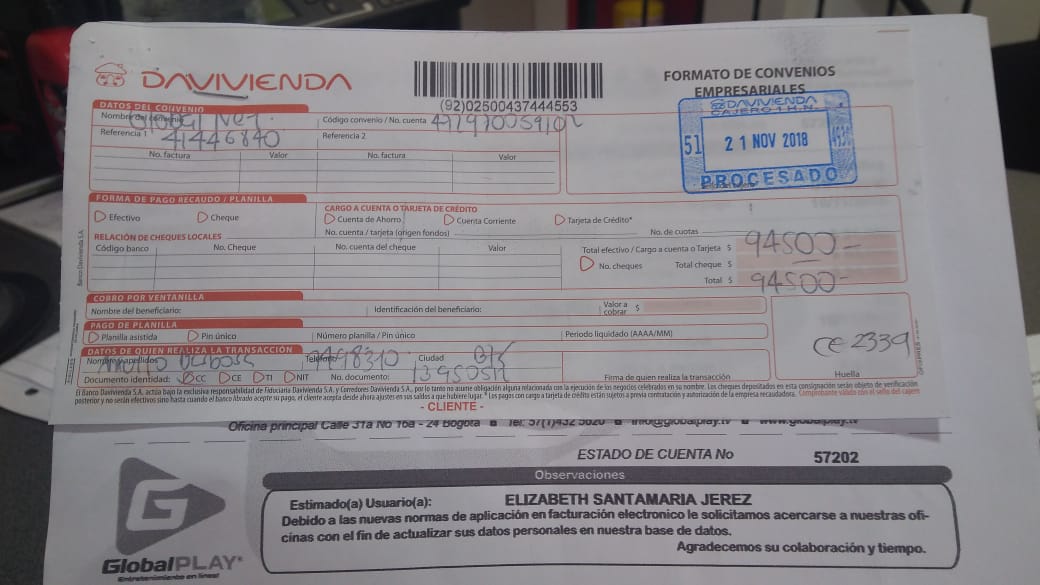 DAVIVIENDA
(92)02500437444553
FORMATO DE CONVENIOS
EMPRESARIALES
DAVIVIENDA
CAJERO 1 H.N.
51 21 NOV 2018
PROCESADO
DATOS DEL CONVENIO
Nombre del convenio Global Net Código convenio / No. cuenta
Referencia 1 41446840 Referencia 2
No. factura Valor No. factura Valor
FORMA DE PAGO RECAUDO / PLANILLA
Efectivo Cheque
CARGO A CUENTA O TARJETA DE CRÉDITO
Cuenta de Ahorro Cuenta Corriente Tarjeta de Crédito*
No. cuenta / tarjeta (origen fondos) No. de cuotas
RELACIÓN DE CHEQUES LOCALES
Código banco No. Cheque No. cuenta del cheque Valor
Total efectivo / Cargo a cuenta o Tarjeta $ 94500-
No. cheques Total cheque $
Total $ 94500-
Banco Davivienda S.A.
COBRO POR VENTANILLA
Nombre del beneficiario: Identificación del beneficiario: Valor a cobrar $
PAGO DE PLANILLA
Planilla asistida Pin único Número planilla / Pin único Periodo liquidado (AAAA/MM)
DATOS DE QUIEN REALIZA LA TRANSACCIÓN
Nombre y apellidos Teléfono Ciudad
Documento identidad: CC CE TI NIT No. documento: Firma de quien realiza la transacción
CE 2339
Huella
El Banco Davivienda S.A. actúa bajo la exclusiva responsabilidad de Fiduciaria Davivienda S.A. y Corredores Davivienda S.A., por lo tanto no asume obligación alguna relacionada con la ejecución de los negocios celebrados en su nombre. Los cheques depositados en esta consignación serán objeto de verificación
posterior y no serán efectivos sino hasta cuando el banco librado acepte su pago, el cliente acepta desde ahora ajustes en sus saldos a que hubiere lugar. * Los pagos con cargo a tarjeta de crédito están sujetos a previa contratación y autorización de la empresa recaudadora. Comprobante válido con el sello del cajero
- CLIENTE -
Oficina principal Calle 31a No 16a - 24 Bogotá Tel: 57(1)432 5620 info@globalplay.tv www.globalplay.tv
ESTADO DE CUENTA No 57202
Observaciones
Estimado(a) Usuario(a): ELIZABETH SANTAMARIA JEREZ
Debido a las nuevas normas de aplicación en facturación electronico le solicitamos acercarse a nuestras ofi-
cinas con el fin de actualizar sus datos personales en nuestra base de datos.
Agradecemos su colaboración y tiempo.
G
GlobalPLAY
Entretenimiento en línea!